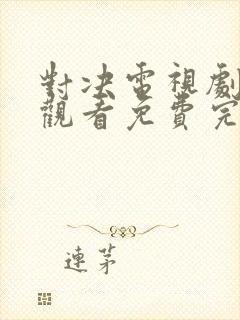 對决電視劇
觀看免費完
連茅